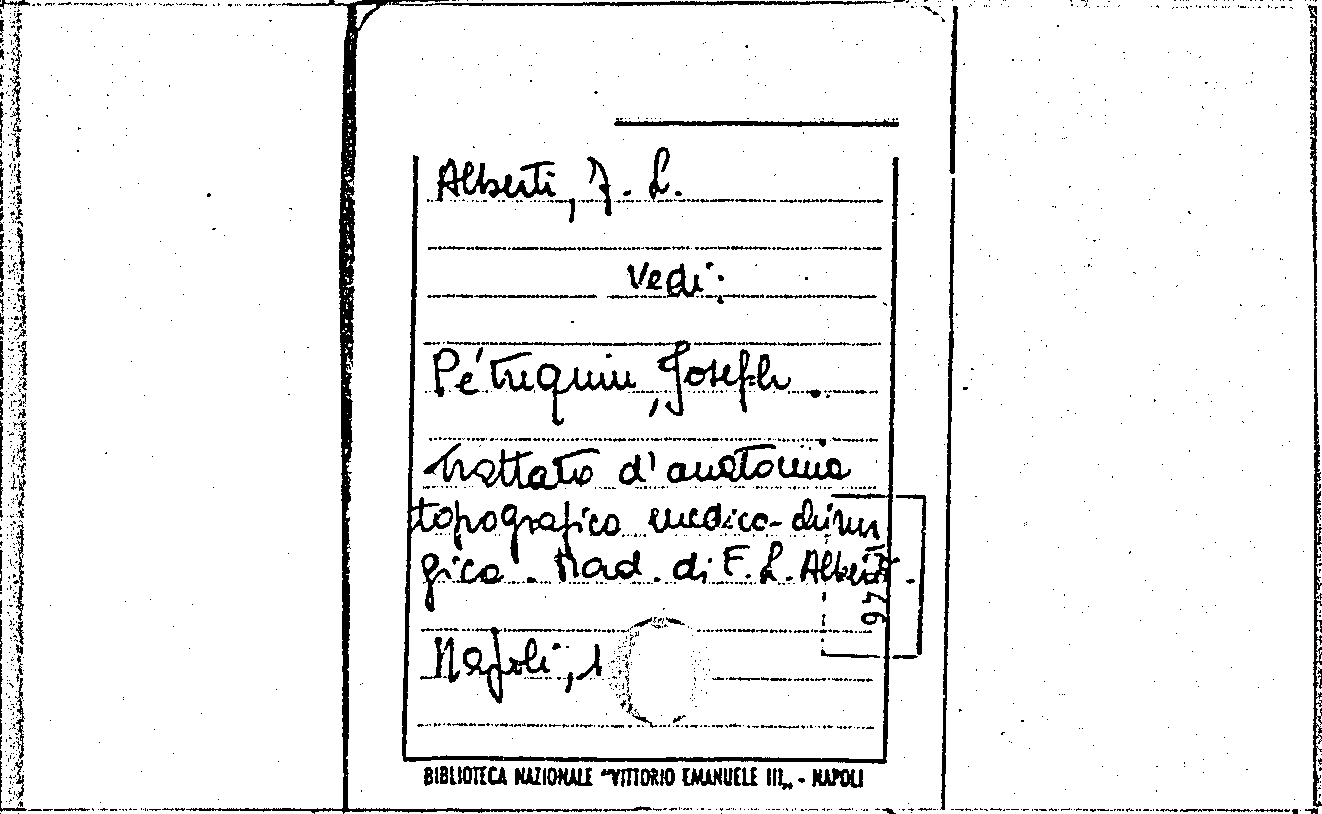 Alberti, F. L.
Vedi:
Pétrequin, Joseph.
Trattato d'anatomia
topografico medico-chirur
gica. Trad. di F. L. Alberti.
Napoli, 1
BIBLIOTECA NAZIONALE "VITTORIO EMANUELE III„ - NAPOLI